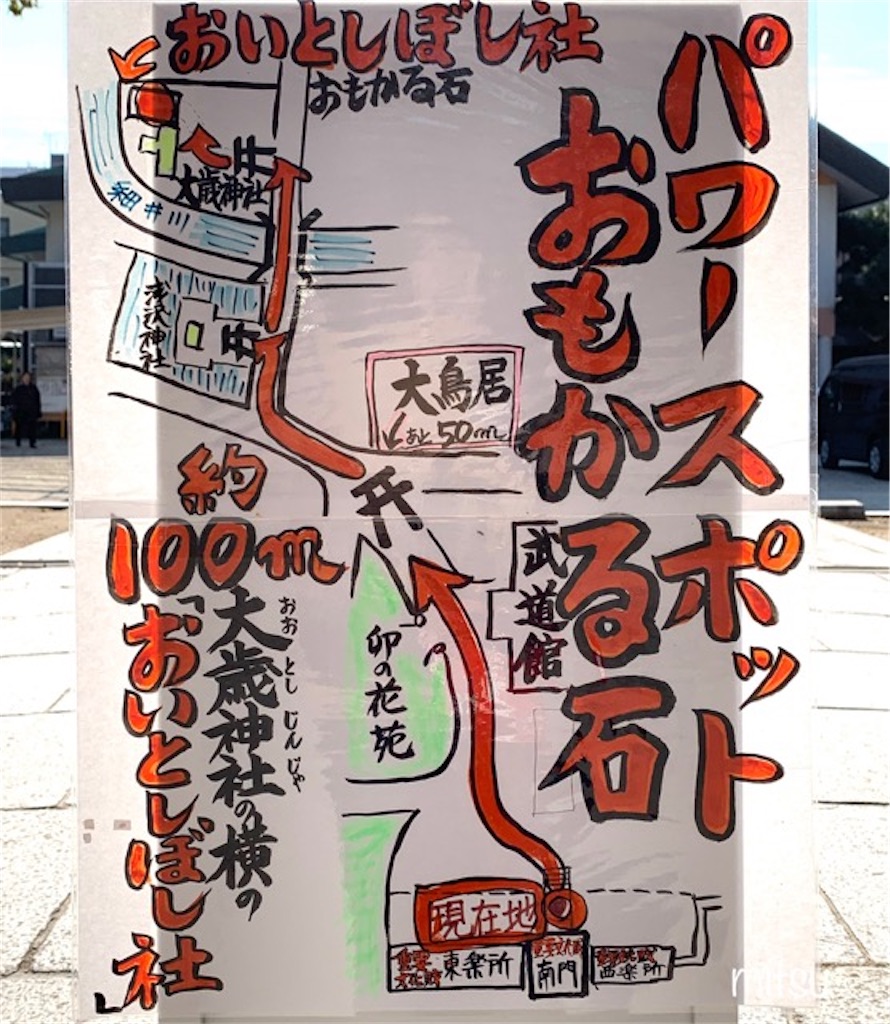 パワースポット
おもかる石
おいとしぼし社
おもかる石
大歳神社
細井川
浅沢神社
大鳥居
あと50m
約
100m
おおとしじんじゃ
「大歳神社の横の
おいとしぼし社」
武道館
卯の花苑
現在地
重要文化財
東楽所
重要文化財
南門
重要文化財
西楽所
mitsu